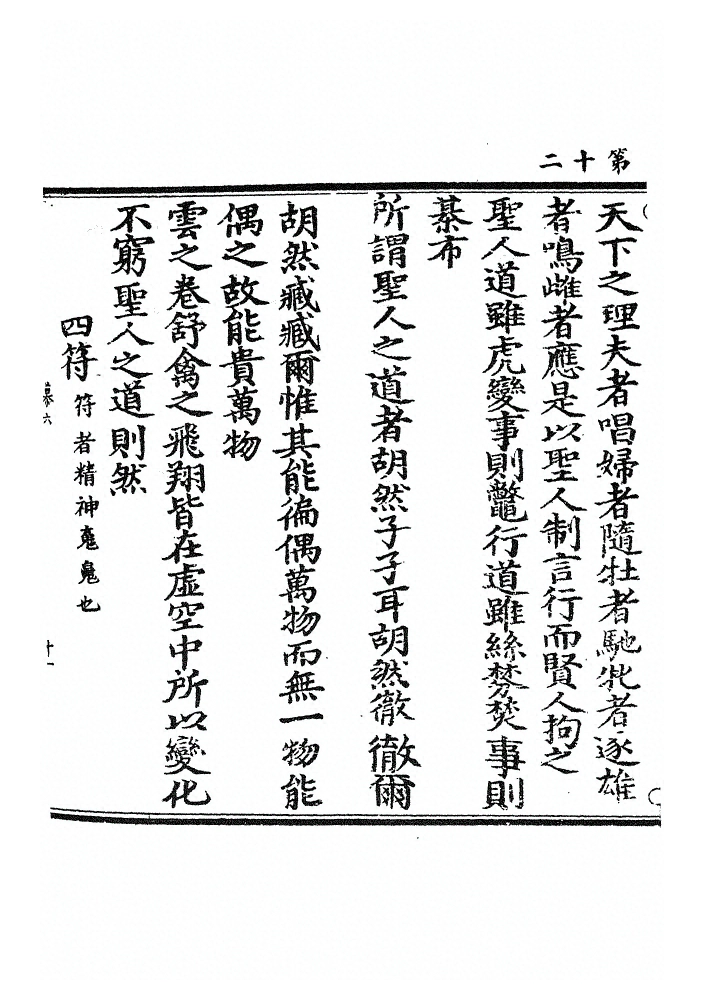 第十二
天下之理夫者唱婦者隨牡者馳牝者逐雄
者鳴雌者應是以聖人制言行而賢人拘之
聖人道雖虎變事則鼈行道雖絲棼事則
棊布
所謂聖人之道者胡然孑孑耳胡然徹徹爾
胡然臧臧爾惟其能徧偶萬物而無一物能
偶之故能貴萬物
雲之卷舒禽之飛翔皆在虛空中所以變化
不窮聖人之道則然
四符 符者精神魂魄也
慕六
十一